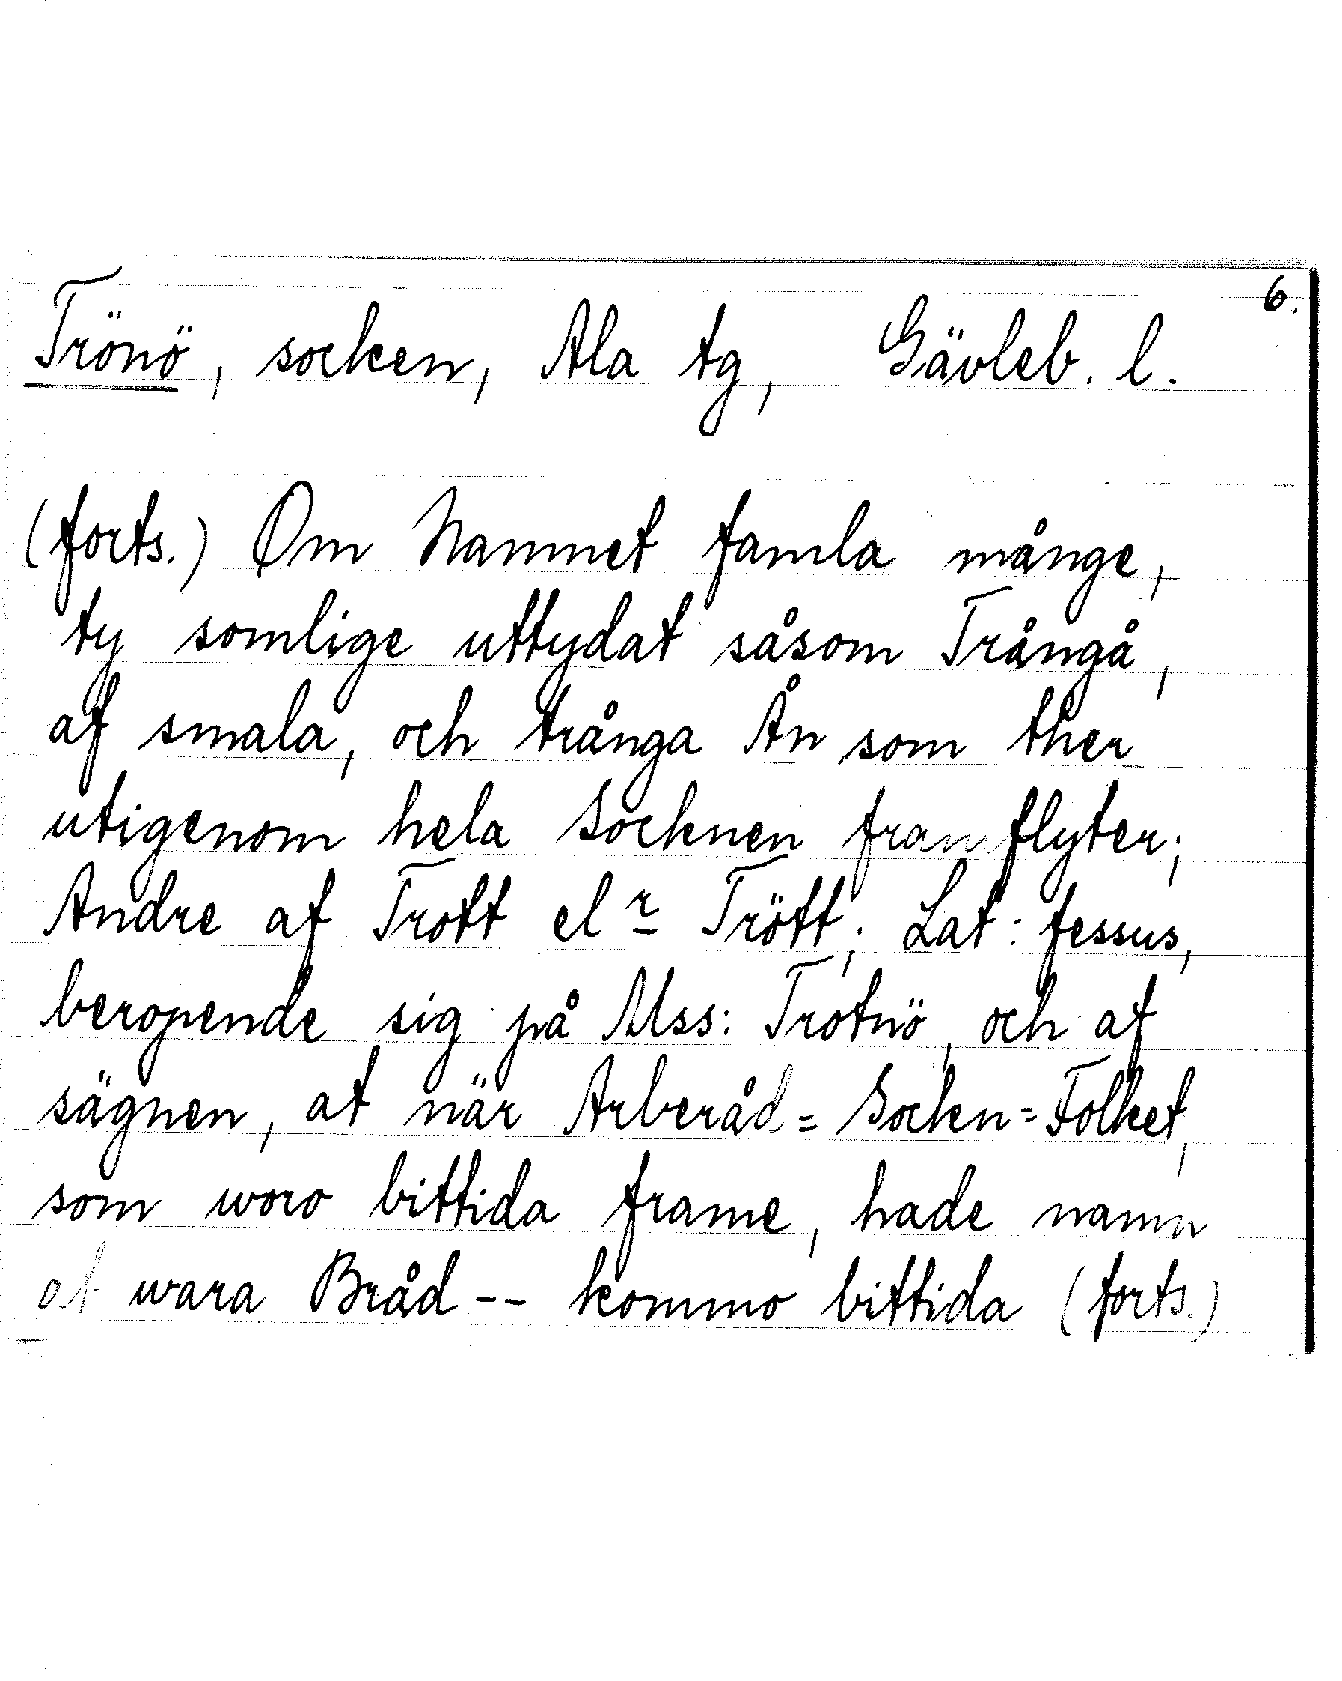 6.
Trönö, socken, Ala tg, Gävleb. l.
(forts.) Om Namnet famla månge,
ty somlige uttydat såsom Trångå,
af smala, och trånga Ån som ther
utigenom hela Socknen framflyter;
Andre af Trott elr Trött; Lat: fessus,
beropende sig på Mss: Trotnö, och af
sägnen, at när Arberåd=Sockn=Folket,
som woro bittida frame, hade namn
at wara Bråd -- kommo bittida (forts.)